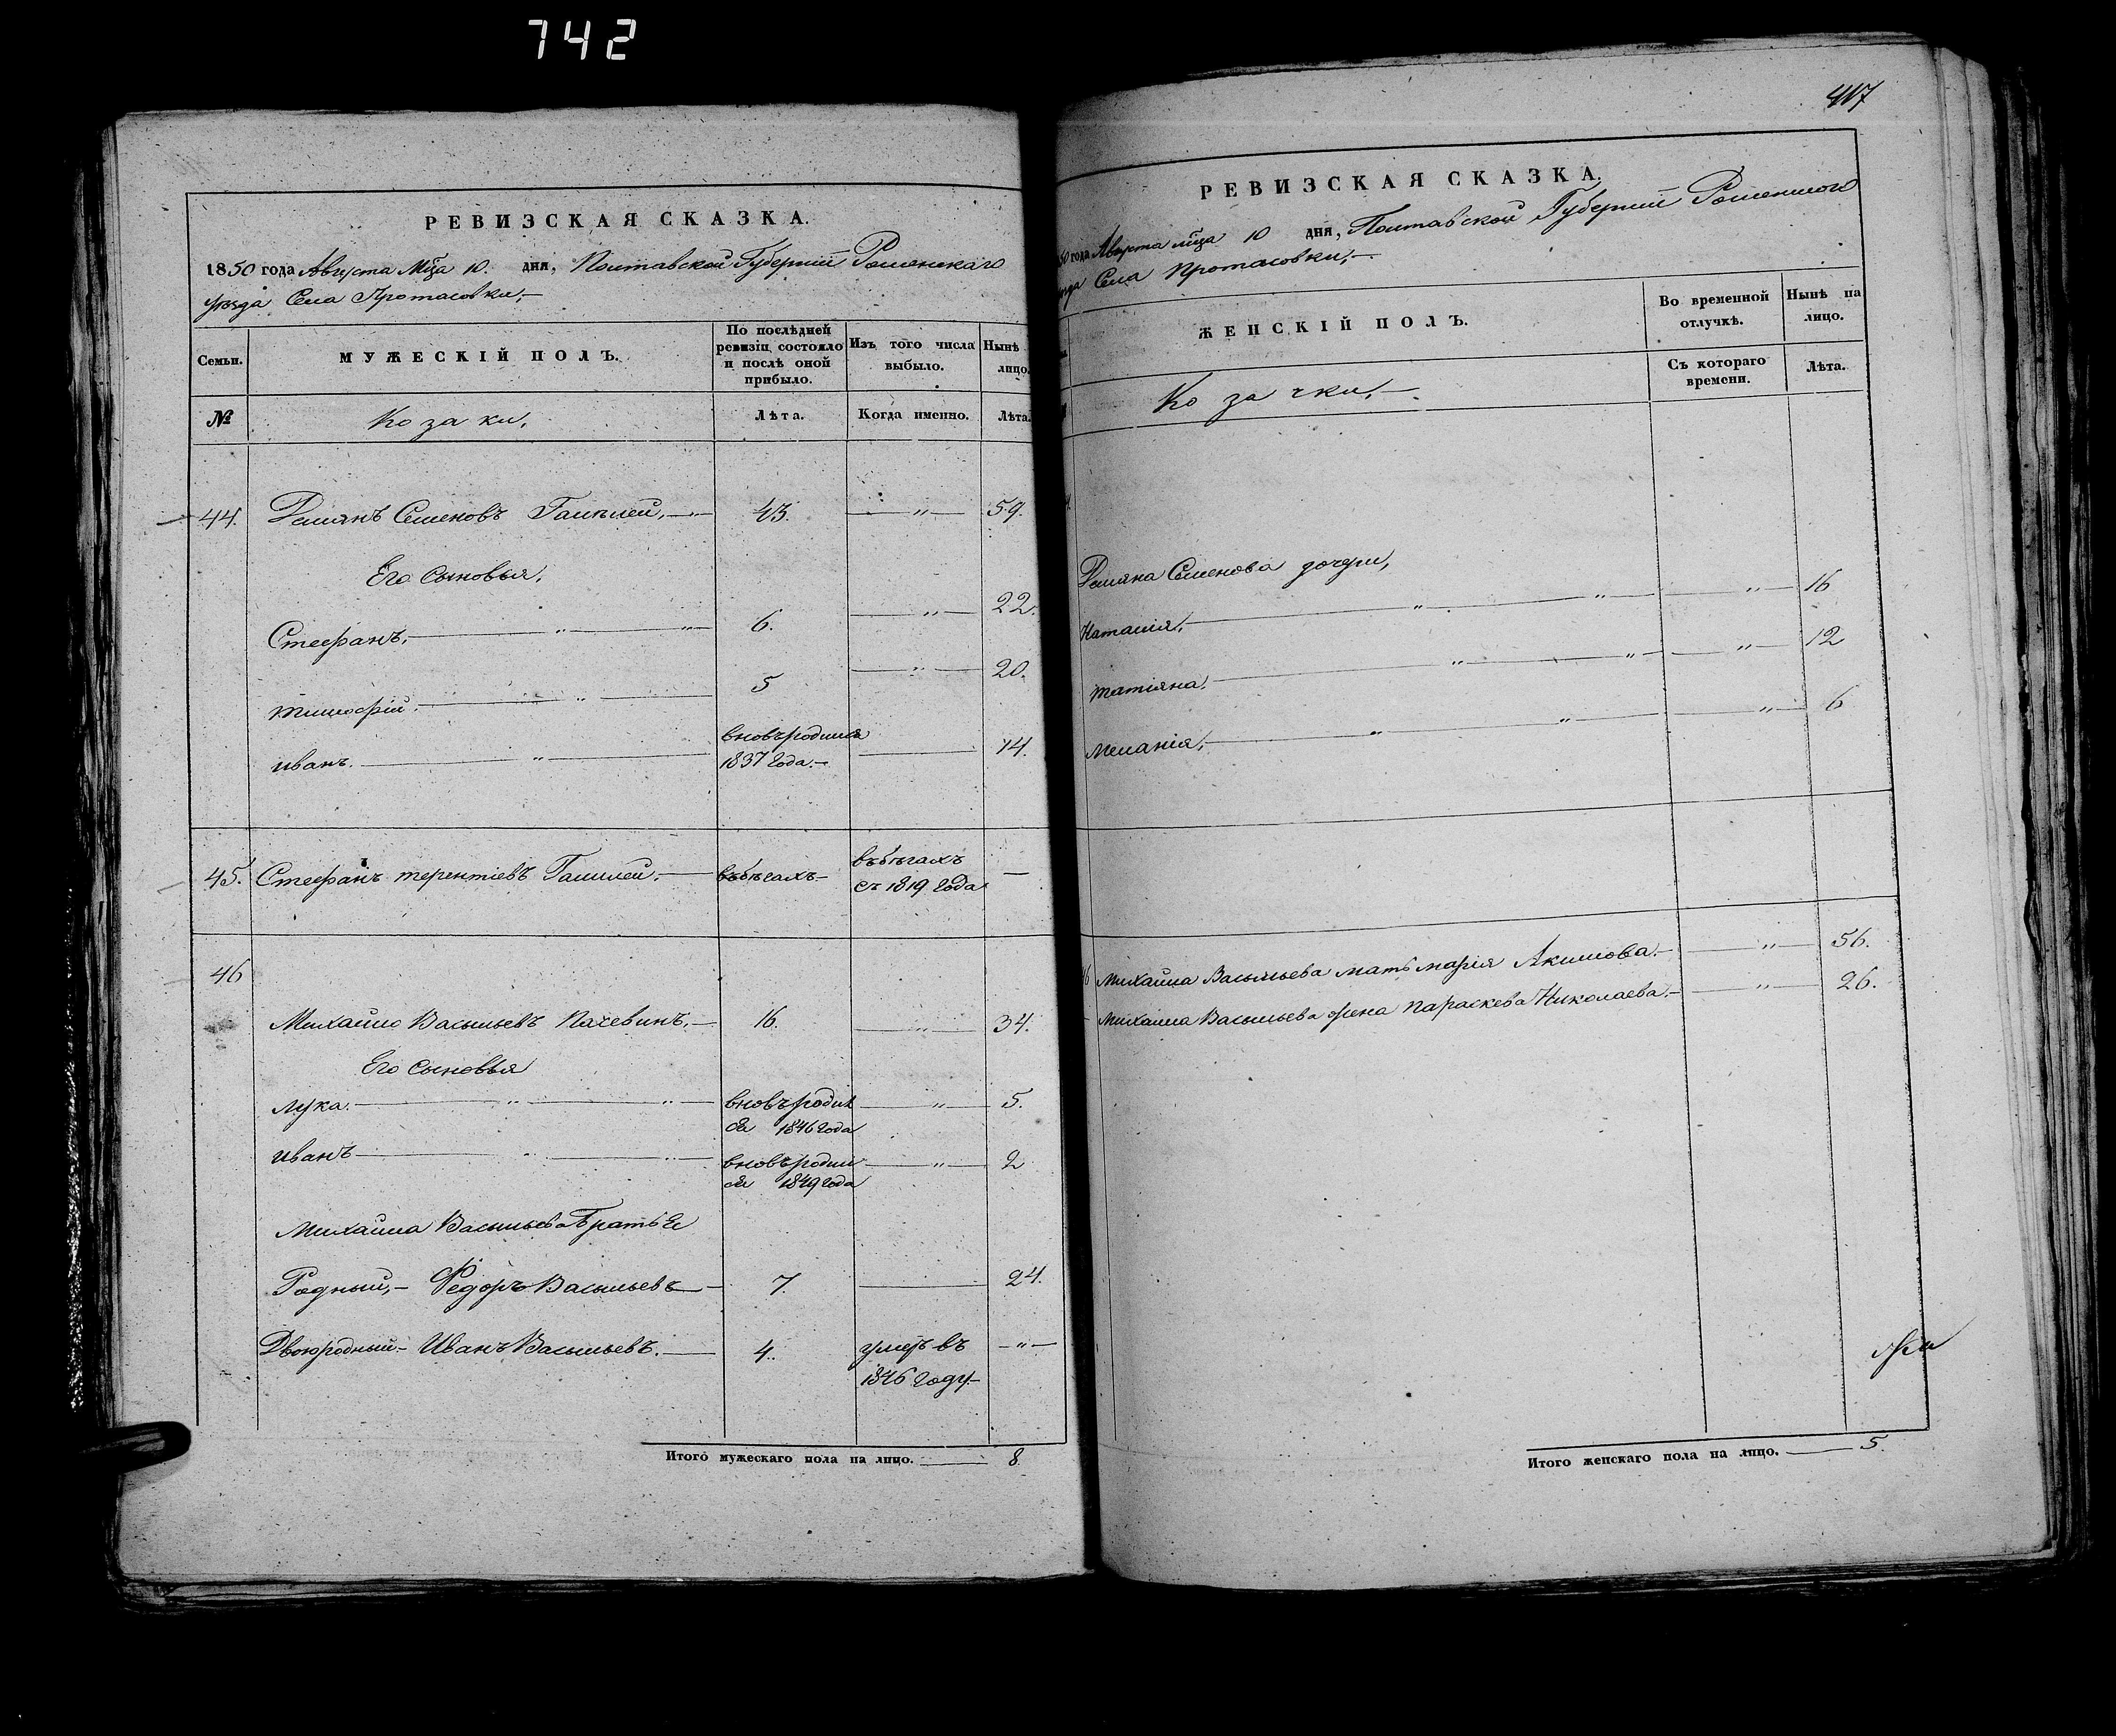 742
РЕВИЗСКАЯ СКАЗКА.
1850 года Августа Мца 10. дня, Полтавской Губернии Роменскаго
уезда Села Протасовки,
Семьи.
МУЖЕСКІЙ ПОЛЪ.
По послѣдней ревизіи состояло и послѣ оной прибыло.
Изъ того числа выбыло.
Нынѣ лицо.
№
Козаки,
Лѣта.
Когда именно.
Лѣта.
44. Демянъ Семеновъ 43. " 59.
Его сыновья,
Стефанъ, " " 6. " 22.
Тимофій. " 5 " 20.
Иванъ. " вновъ родился 1837 года. 14.
45. Стефанъ Терентіевъ въ бѣгахъ въ бѣгахъ съ 1819 года —
46
Михайло Васильевъ 16. " 34.
Его сыновья
Лука. " " вновъ родил ся 1846 года " 5.
Иванъ " " вновъ родил ся 1849 года " 2
Михайла Васильева Братье
Родный, – Федоръ Васильевъ 7. 24.
Двоюродный – Иванъ Васильевъ. 4. умеръ въ 1846 году – " –
Итого мужескаго пола на лицо. 8.
417
РЕВИЗСКАЯ СКАЗКА.
50 года Августа мца 10 дня, Полтавской Губернии Роменского
Села Протасовки,
ЖЕНСКІЙ ПОЛЪ.
Во временной отлучкѣ.
Нынѣ на лицо.
Съ котораго времени.
Лѣта.
Козачки,
Демяна Семенова дочери,
Наталія, " " " 16
Татіяна. " " " 12
Меланія, " " " 6
46 Михайла Васильева мать Марія Акимова. " 56.
Михайла Васильева жена Параскева Николаева. " 26.
Итого женскаго пола на лицо. 5.